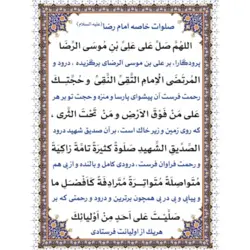 صلوات خاصه امام رضا (علیه السلام)
اَللّهُمَّ صَلِّ عَلی عَلِیِّ بْنِ مُوسَی الرِّضَا
پروردگارا، بر علی بن موسی الرضای برگزیده ، درود و
الْمُرْتَضَی الْاِمامِ التَّقِیِّ النَّقِیِّ وَ حُجَّتِکَ
رحمت فرست آن پیشوای پارسا و منزه و حجت تو بر هر
عَلی مَنْ فَوْقَ الْاَرْضِ وَ مَنْ تَحْتَ الثَّری
که روی زمین و زیر خاک است ، بر آن صدیق شهید درود
الصِّدّیقِ الشَّهیدِ صَلَوةً کَثیرَةً تامَّةً زاکِیَةً
و رحمت فراوان فرست ، درودی کامل و بالنده و از پی هم
مُتَواصِلَةً مُتَواتِرَةً مُتَرادِفَةً کَاَفْضَلِ ما
و پیاپی و پی در پی همچون برترین و درود و رحمتی که بر
صَلَّیْتَ عَلی اَحَدٍ مِنْ اَوْلِیائِکَ
هریک از اولیانت فرستادی